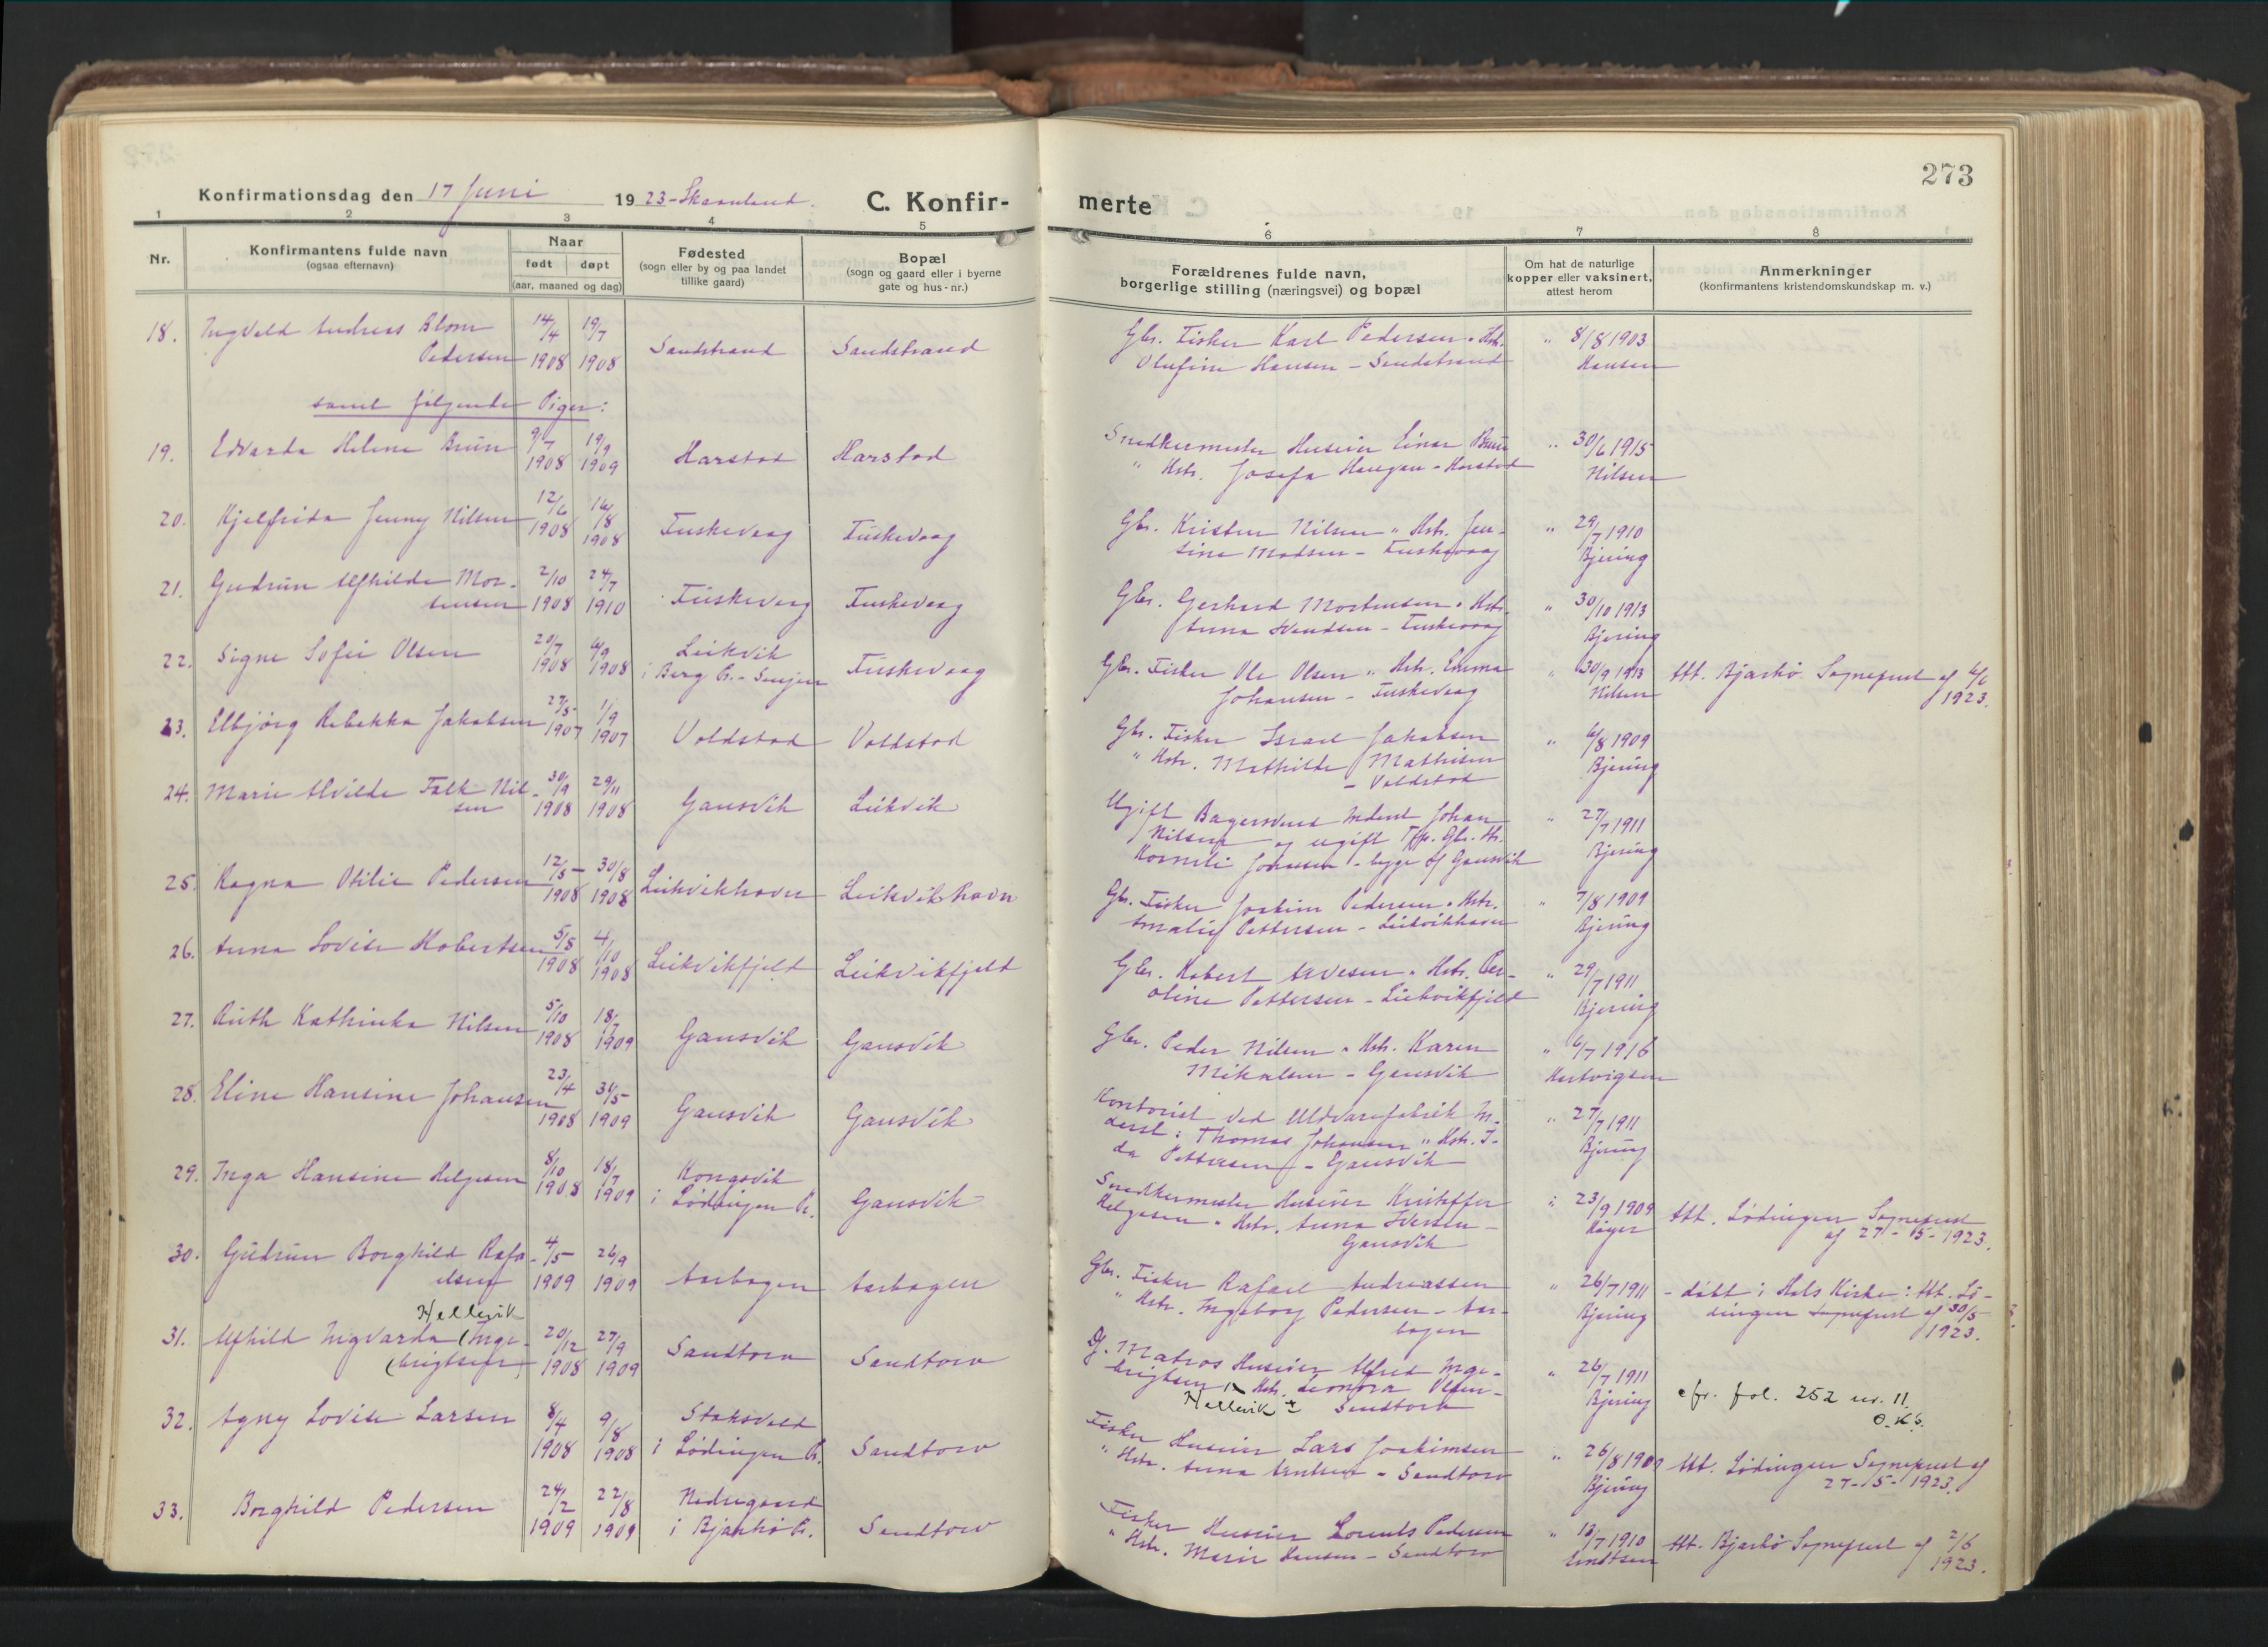 273
Konfirmationsdag den 17 Juni 1923 - Skaanland. C. Konfir- merte
1 2 3 4 5 6 7 8
Nr.
Konfirmantens fulde navn
(ogsaa efternavn)
Naar
født døpt
(aar, maaned og dag)
Fødested
(sogn eller by og paa landet
tillike gaard)
Bopæl
(sogn og gaard eller i byerne
gate og hus-nr.)
Forældrenes fulde navn,
borgerlige stilling (næringsvei) og bopæl
Om hat de naturlige
kopper eller vaksinert,
attest herom
Anmerkninger
(konfirmantens kristendomskundskap m. v.)
18. Ingvald Andreas Blom 14/4 19/7 Gbr. Fisker Karl Pedersen " Hstr. " 8/8 1903
Pedersen 1908 1908 Sandstrand Sandstrand Olufine Hansen - Sandstrand Hansen
samt følgende Piger:
19. Edvarda Helene Bruun 9/7 19/9 Harstad Harstad Snedkermester Huseier Einar Bruun " 30/6 1915
1908 1909 " Hstr. Josefa Haugan - Harstad Nilsen
20. Kjelfrida Jenny Nilsen 12/6 16/8 Fuskevaag Fuskevaag Gbr. Kristen Nilsen " Hstr. Jen- " 29/7 1910
1908 1908 sine Madsen - Fuskevaag Bjering
21. Gudrun Alfhilde Mor- 2/10 24/7 Fuskevaag Fuskevaag Gbr. Gerhard Mortensen " Hstr. " 30/10 1913
tensen 1908 1910 Anna Svendsen - Fuskevaag Bjering
22. Signe Sofie Olsen 29/7 6/9 Leikvik Gbr. Fisker Ole Olsen " Hstr. Emma " 30/9 1913 Att. Bjarkø Sogneprest af 6/6
1908 1908 i Berg P. - Senjen Fuskevaag Johansen - Fuskevaag Nilsen 1923.
23. Elbjørg Rebekka Jakobsen 27/5 1/9 Voldstad Voldstad Gbr. Fisker Israel Jakobsen " 6/8 1909
1907 1907 " Hstr. Mathilde Mathisen Bjering
- Voldstad
24. Marie Alvilde Falk Nil- 30/9 29/11 Gausvik Leikvik Ugift Bagersvend Indent Johan " 27/7 1911
sen 1908 1908 Nilsen og ugift Gbr. dtr. Bjering
Kornelie Johansen - begge af Gausvik
25. Ragna Otilie Pedersen 12/5 30/8 Leikvikhavn Leikvikhavn Gbr. Fisker Joakim Pedersen " Hstr. " 7/8 1909
1908 1908 Amalie Pettersen - Leikvikhavn Bjering
26. Anna Lovise Robertsen 5/8 4/10 Leikvikfjeld Leikvikfjeld Gbr. Robert Arvesen " Hstr. Per- " 29/7 1911
1908 1908 oline Pettersen - Leikvikfjeld Bjering
27. Ruth Kathinka Nilsen 5/10 18/7 Gausvik Gausvik Gbr. Peder Nilsen " Hstr. Karen " 6/7 1916
1908 1909 Mikalsen - Gausvik Hartvigsen
28. Eline Hansine Johansen 23/4 31/5 Gausvik Gausvik Kontorist ved Uldvarefabrik In- " 27/7 1911
1908 1909 derst: Thomas Johansen " Hstr. I- Bjering
da Pettersen - Gausvik
29. Inga Hansine Helgesen 8/10 18/7 Kongsvik Snedkermester Huseier Kristoffer " 23/9 1909 Att. Lødingen Sogneprest
1908 1909 i Lødingen P. Gausvik Helgesen " Hstr. Anna Iversen - af 27-5-1923.
Gausvik
30. Gudrun Borghild Rafa- 4/5 26/9 Aarbogen Aarbogen Gbr. Fisker Rafael Andreassen " 26/7 1911 - døbt i Hols Kirke: Att. Lø-
elsen 1909 1909 " Hstr. Ingeborg Pedersen - Aar- Bjering dingen Sogneprest af 30/5
bogen 1923.
Hellevik
31. Alfhild Ingvarda (Inge- 20/12 27/9 Sandtorv Sandtorv Df. Matros Huseier Alfred Inge- " 26/7 1911
(brigtsen) 1908 1909 brigtsen Hstr. Leonora Olsen - Bjering cfr. fol. 252 nr. 11.
Hellevik Sandtorv O.K.
32. Agny Lovise Larsen 8/4 9/8 Stoksvold Fisker Huseier Lars Joakimsen " 26/8 1909 Att. Lødingen Sogneprest af
1908 1908 i Lødingen P. Sandtorv " Hstr. Anna Arntsen - Sandtorv Bjering 27-5-1923.
33. Borghild Pedersen 24/2 22/8 Nedregaard Fisker Huseier Lorents Pedersen " 7 1910 Att. Bjarkø Sogneprest af 2/6
1909 1909 i Bjarkø P. Sandtorv " Hstr. Marie Hansen - Sandtorv 1923.